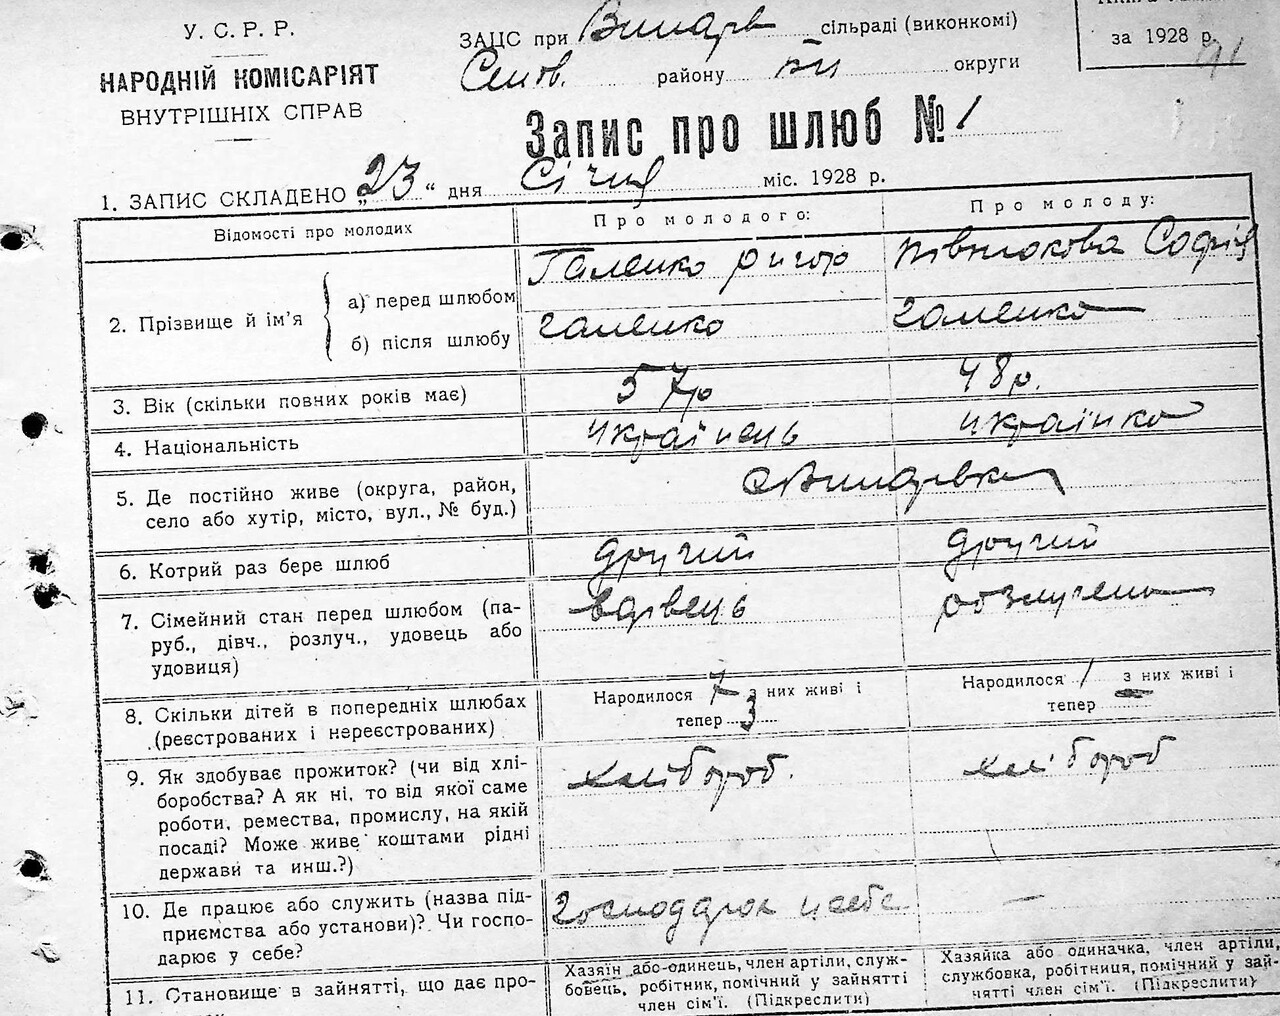 У. С. Р. Р.
НАРОДНІЙ КОМІСАРІЯТ
ВНУТРІШНІХ СПРАВ
ЗАЦС при Винарв сільраді (виконкомі)
району округи
за 1928 р.
91
Запис про шлюб № 1
1. ЗАПИС СКЛАДЕНО „23“ дня Січня міс. 1928 р.
Відомості про молодих
Про молодого:
Про молоду:
2. Прізвище й ім’я
а) перед шлюбом
Галенко Софія
б) після шлюбу
Галенко Галенко
3. Вік (скільки повних років має)
57р 48р.
4. Національність
Українець Українка
5. Де постійно живе (округа, район,
село або хутір, місто, вул., № буд.)
6. Котрий раз бере шлюб
другий другий
7. Сімейний стан перед шлюбом (па-
руб., дівч., розлуч., удовець або
удовиця)
вдівець розлучена
8. Скільки дітей в попередніх шлюбах
(реєстрованих і нереєстрованих)
Народилося 7 з них живі і
тепер 3
Народилося 1 з них живі і
тепер —
9. Як здобуває прожиток? (чи від хлі-
боробства? А як ні, то від якої саме
роботи, ремества, промислу, на якій
посаді? Може живе коштами рідні
держави та инш.?)
хлібороб. хлібороб
10. Де працює або служить (назва під-
приємства або установи)? Чи госпо-
дарює у себе?
у себе —
11. Становище в зайнятті, що дає про-
Хазяїн або одинець, член артіли, служ-
бовець, робітник, помічний у зайнятті
член сім’ї. (Підкреслити)
Хазяйка або одиначка, член артіли,
службовка, робітниця, помічний у зай-
нятті член сім’ї. (Підкреслити)